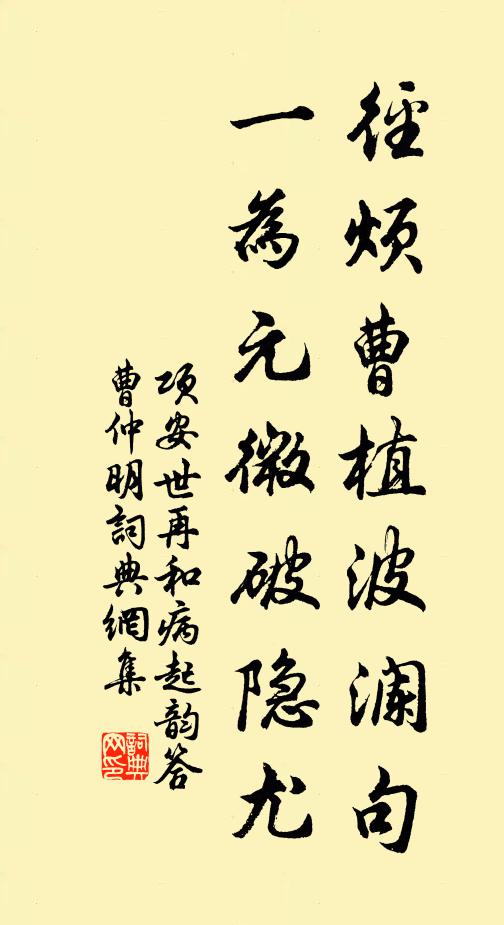 徑煩曹植波澜句
一為元微破隐尤
項安世再和病起韵答
曹仲明詞典網集
詞典
网印